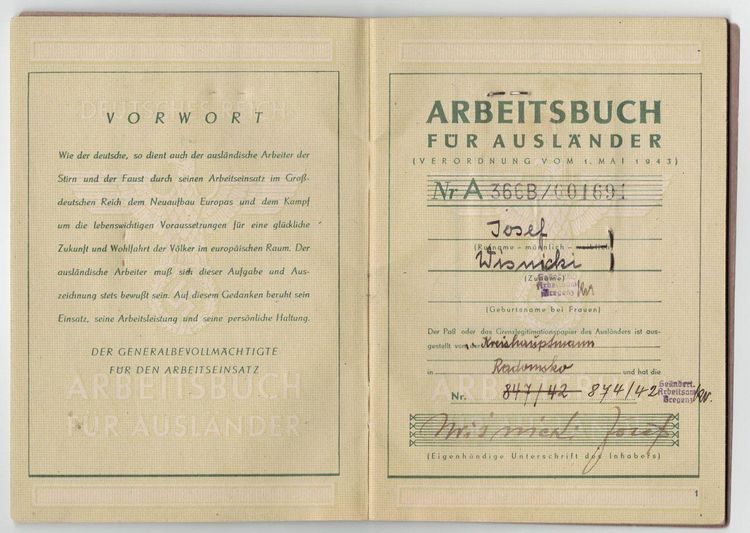 DEUTSCHES REICH
VORWORT
Wie der deutsche, so dient auch der ausländische Arbeiter der
Stirn und der Faust durch seinen Arbeitseinsatz im Groß-
deutschen Reich dem Neuaufbau Europas und dem Kampf
um die lebenswichtigen Voraussetzungen für eine glückliche
Zukunft und Wohlfahrt der Völker im europäischen Raum. Der
ausländische Arbeiter muß sich dieser Aufgabe und Aus-
zeichnung stets bewußt sein. Auf diesem Gedanken beruht sein
Einsatz, seine Arbeitsleistung und seine persönliche Haltung.
DER GENERALBEVOLLMÄCHTIGTE
FÜR DEN ARBEITSEINSATZ
ARBEITSBUCH
FÜR AUSLÄNDER
ARBEITSBUCH
FÜR AUSLÄNDER
(VERORDNUNG VOM 1. MAI 1943)
Nr A 366B/001691
Josef
(Rufname – männlich – weiblich)
Wisnicki
(Zuname)
Geändert.
Arbeitsamt
Bregenz
(Geburtsname bei Frauen)
Der Paß oder das Grenzlegitimationspapier des Ausländers ist aus-
gestellt von der Kreishauptmann
in Radomsko und hat die
Nr. 847/42 874/42
Geändert.
Arbeitsamt
Bregenz
Wiśnicki Josef
(Eigenhändige Unterschrift des Inhabers)
1